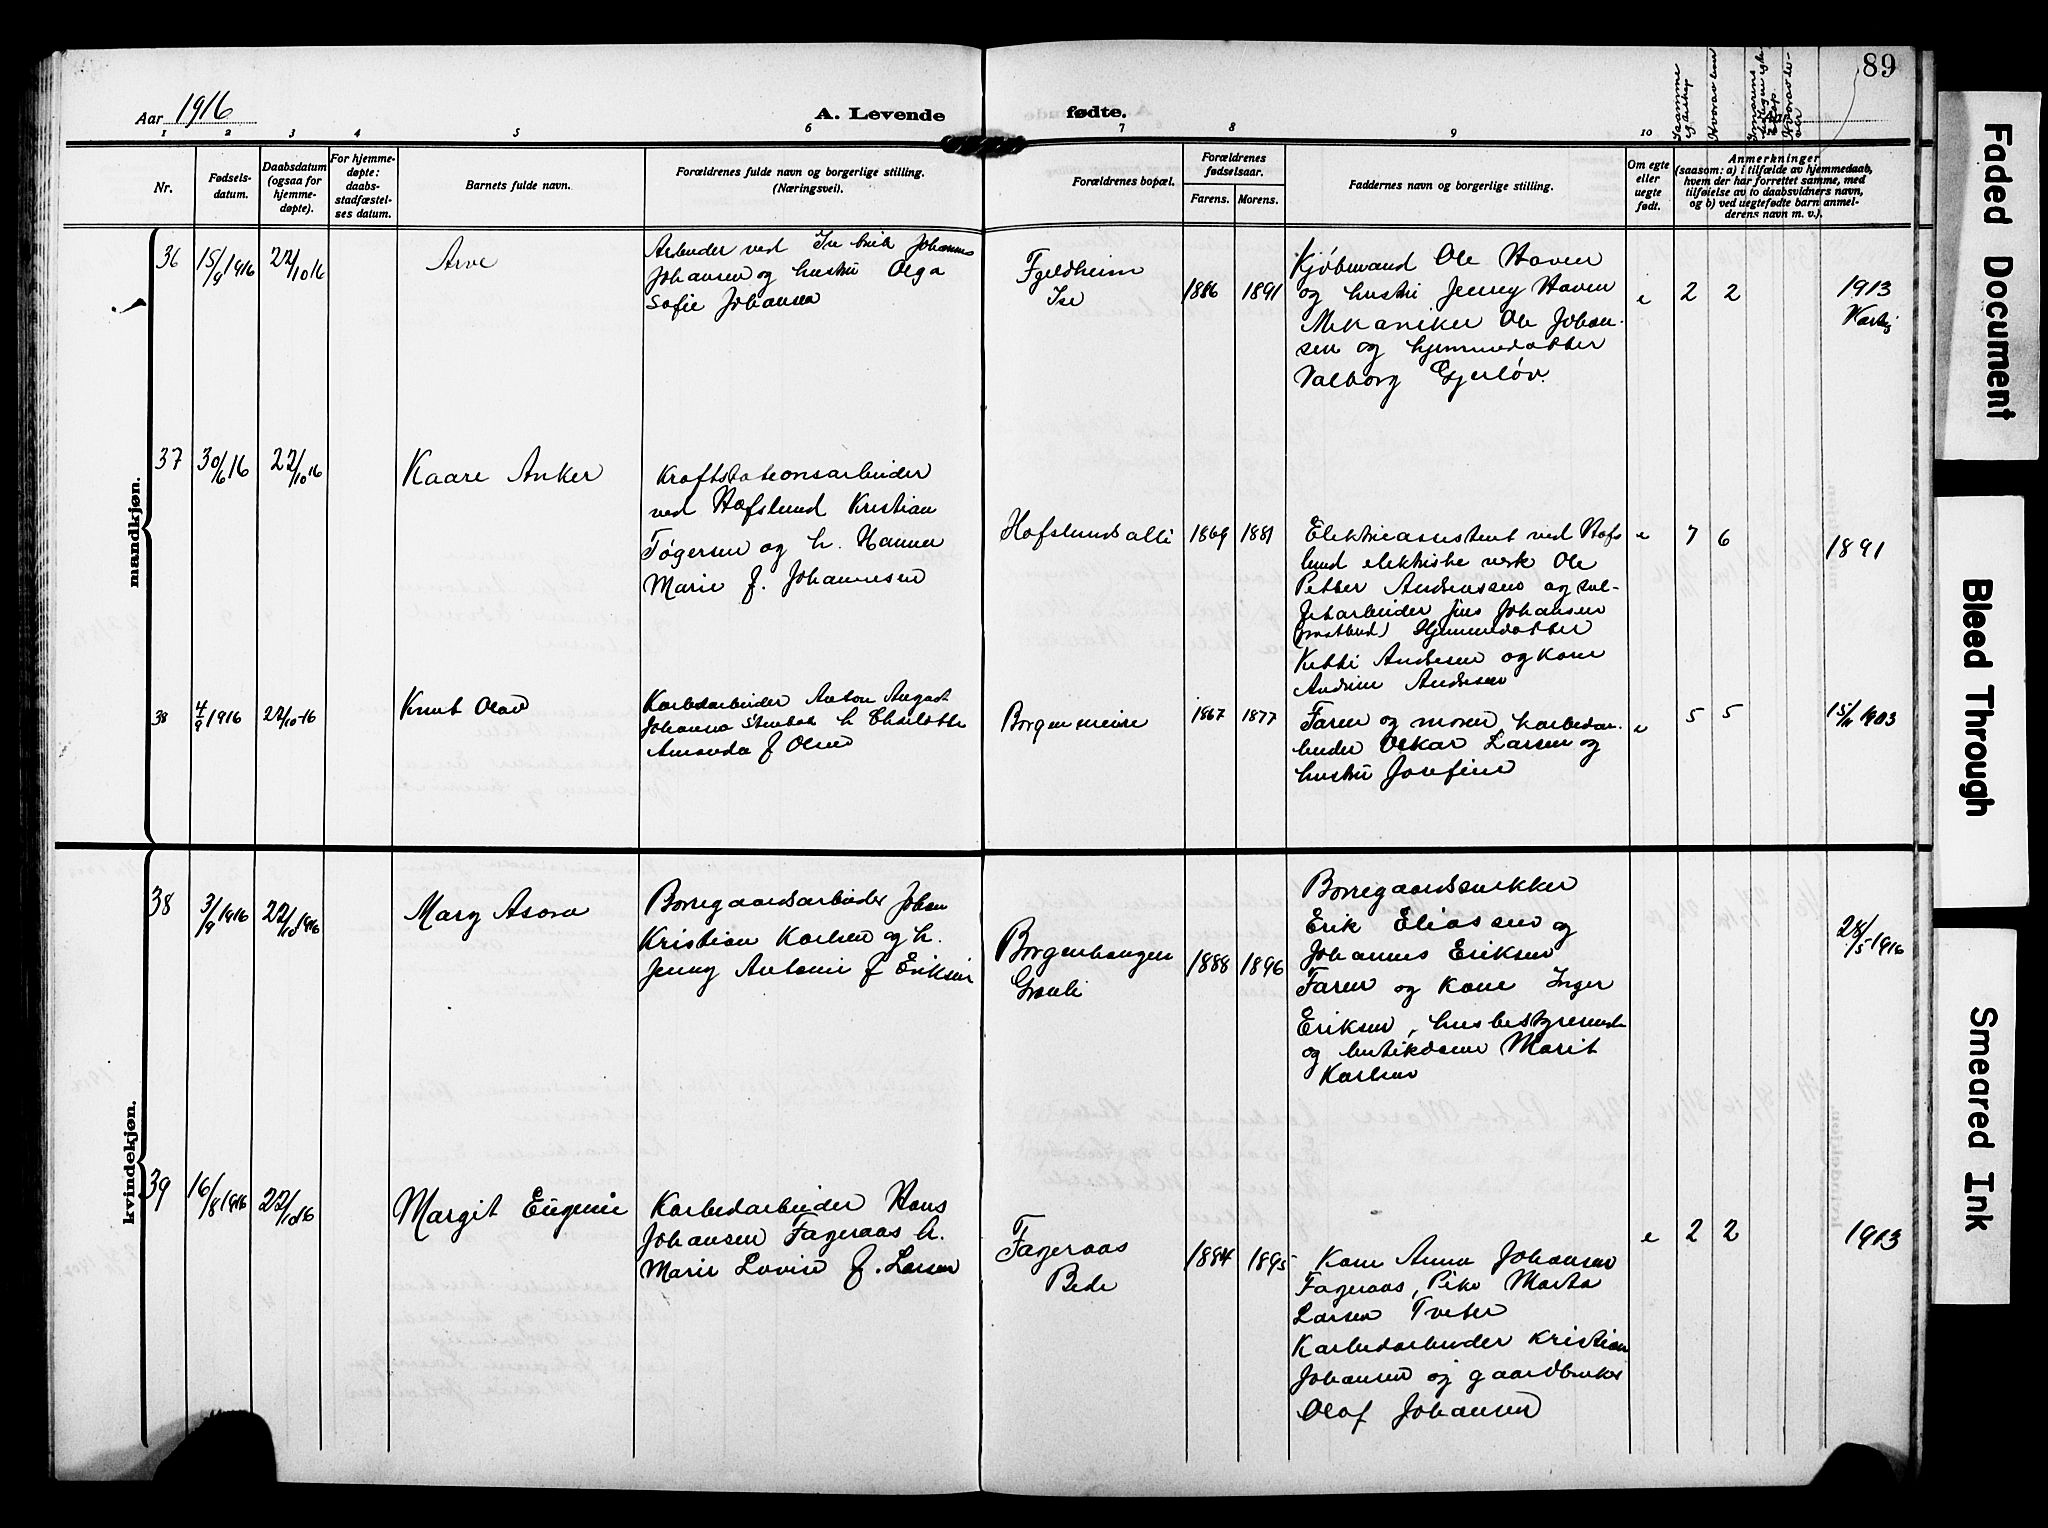 89
Aar 1916
A. Levende fødte.
1 2 3 4 5 6 7 8 9 10
Nr.
Fødsels-
datum.
Daabsdatum
(ogsaa for
hjemme-
døpte).
For hjemme-
døpte:
daabs-
stadfæstel-
ses datum.
Barnets fulde navn.
Forældrenes fulde navn og borgerlige stilling.
(Næringsvei).
Forældrenes bopæl.
Forældrenes
fødselsaar.
Farens. Morens.
Faddernes navn og borgerlige stilling.
Om egte
eller
uegte
født.
Anmerkninger
(saasom: a) i tilfælde av hjemmedaab,
hvem der har forrettet samme, med
tilføielse av to daabsvidners navn,
og b) ved uegtefødte barn anmel-
derens navn m. v.).
mandkjøn.
36
15/9 1916
22/10 16
Arve
Arbeider ved Ise bruk Johannes
Johansen og hustru Olga
Sofie Johansen
Fjeldheim
Ise
1886
1891
Kjøbmand Ole Haven
og hustru Jenny Haven
Mekaniker Ole Johan-
sen og hjemmedatter
Valborg Gjerløv.
e
2
2
1913
Varteig
37
30/6 16
22/10 16
Kaare Anker
Kraftstationsarbeider
ved Hafslund Kristian
Tøgersen og h. Hanna
Marie f. Johannesen
Hafslundsalle
1869
1881
Elektricassistent ved Hafs
lund elektriske verk Ole
Petter Andreassen og sul-
fitarbeider Jens Johansen
Hjemmedatter
Ketti Andersen og kone
Andersen
e
7
6
1891
38
4/9 1916
22/10-16
Knut Olav
Karbedarbeider Anton August
Johansen Stenbek h Charlotte
Amanda f Olsen
Borgenmeire
1867
1877
Faren og moren karbedar-
beider Oskar Larsen og
hustru Josefine
e
5
5
1903
kvindekjøn.
38
3/9 1916
22/10 1916
Mary Asora
Borregaardsarbeider Johan
Kristian Karlsen og h.
Jenny Antonie f Eriksen
Borgenhaugen
Grønli
1888
1896
Borregaardssnekker
Erik Eliassen og
Johannes Eriksen
Faren og kone Inger
Eriksen, husbestyrerinde
og butikdame Marit
Karlsen
28/5 1916
39
16/8 1916
22/10 16
Margit Eugenie
Karbedarbeider Hans
Johansen Fageraas h.
Marie Lovise f. Larsen
Fageraas
Bede
1884
1895
e
2
2
1913
Kone Anna Johansen
Fageraas, Pike Marta
Larsen Tveter
Karbedarbeider Kristian
Johansen og gaardbruker
Olaf Johansen
Faded Document
Bleed Through
Smeared Ink